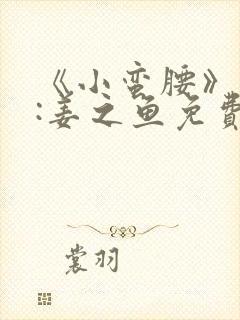 《小蛮腰》
:姜之鱼免費
裳羽